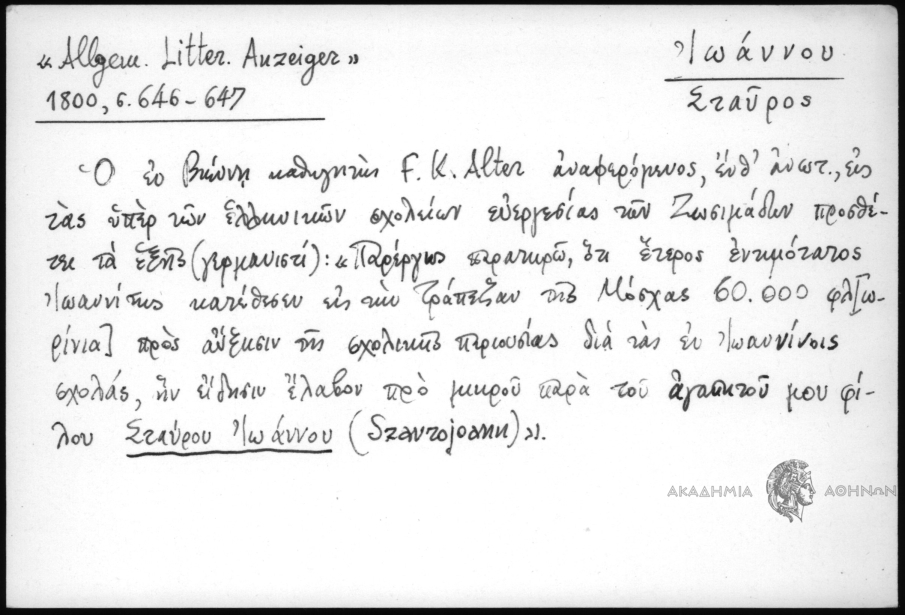 «Allgem. Litter. Anzeiger»
1800, σ. 646-647
Ἰωάννου
Σταῦρος
Ὁ ἐν Βιέννῃ καθηγητὴς F. K. Alter ἀναφερόμενος, ἔνθ' ἀνωτ., εἰς
τὰς ὑπὲρ τῶν ἑλληνικῶν σχολείων εὐεργεσίας τῶν Ζωσιμάδων προσθέ-
τει τὰ ἑξῆς (γερμανιστί): «Παρέργως παρατηρῶ, ὅτι ἕτερος ἐντιμότατος
Ἰωαννίτης κατέθεσεν εἰς τὴν Τράπεζαν τῆς Μόσχας 60.000 φλ[ω-
ρίνια] πρὸς αὔξησιν τῆς σχολικῆς περιουσίας διὰ τὰς ἐν Ἰωαννίνοις
σχολάς, ἣν εἴδησιν ἔλαβον πρὸ μικροῦ παρὰ τοῦ ἀγαπητοῦ μου φί-
λου Σταύρου Ἰωάννου (Szavrojoann)».
ΑΚΑΔΗΜΙΑ ΑΘΗΝΩΝ